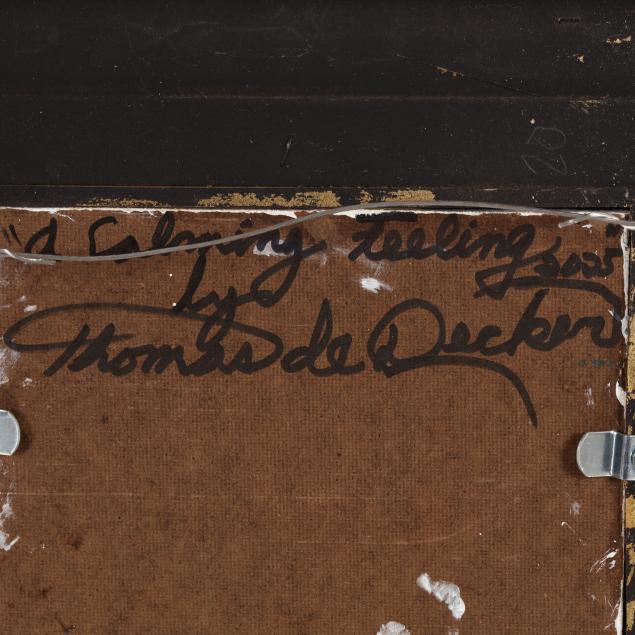 "A Calming Feeling" 2025
by
Thomas de Decker
20